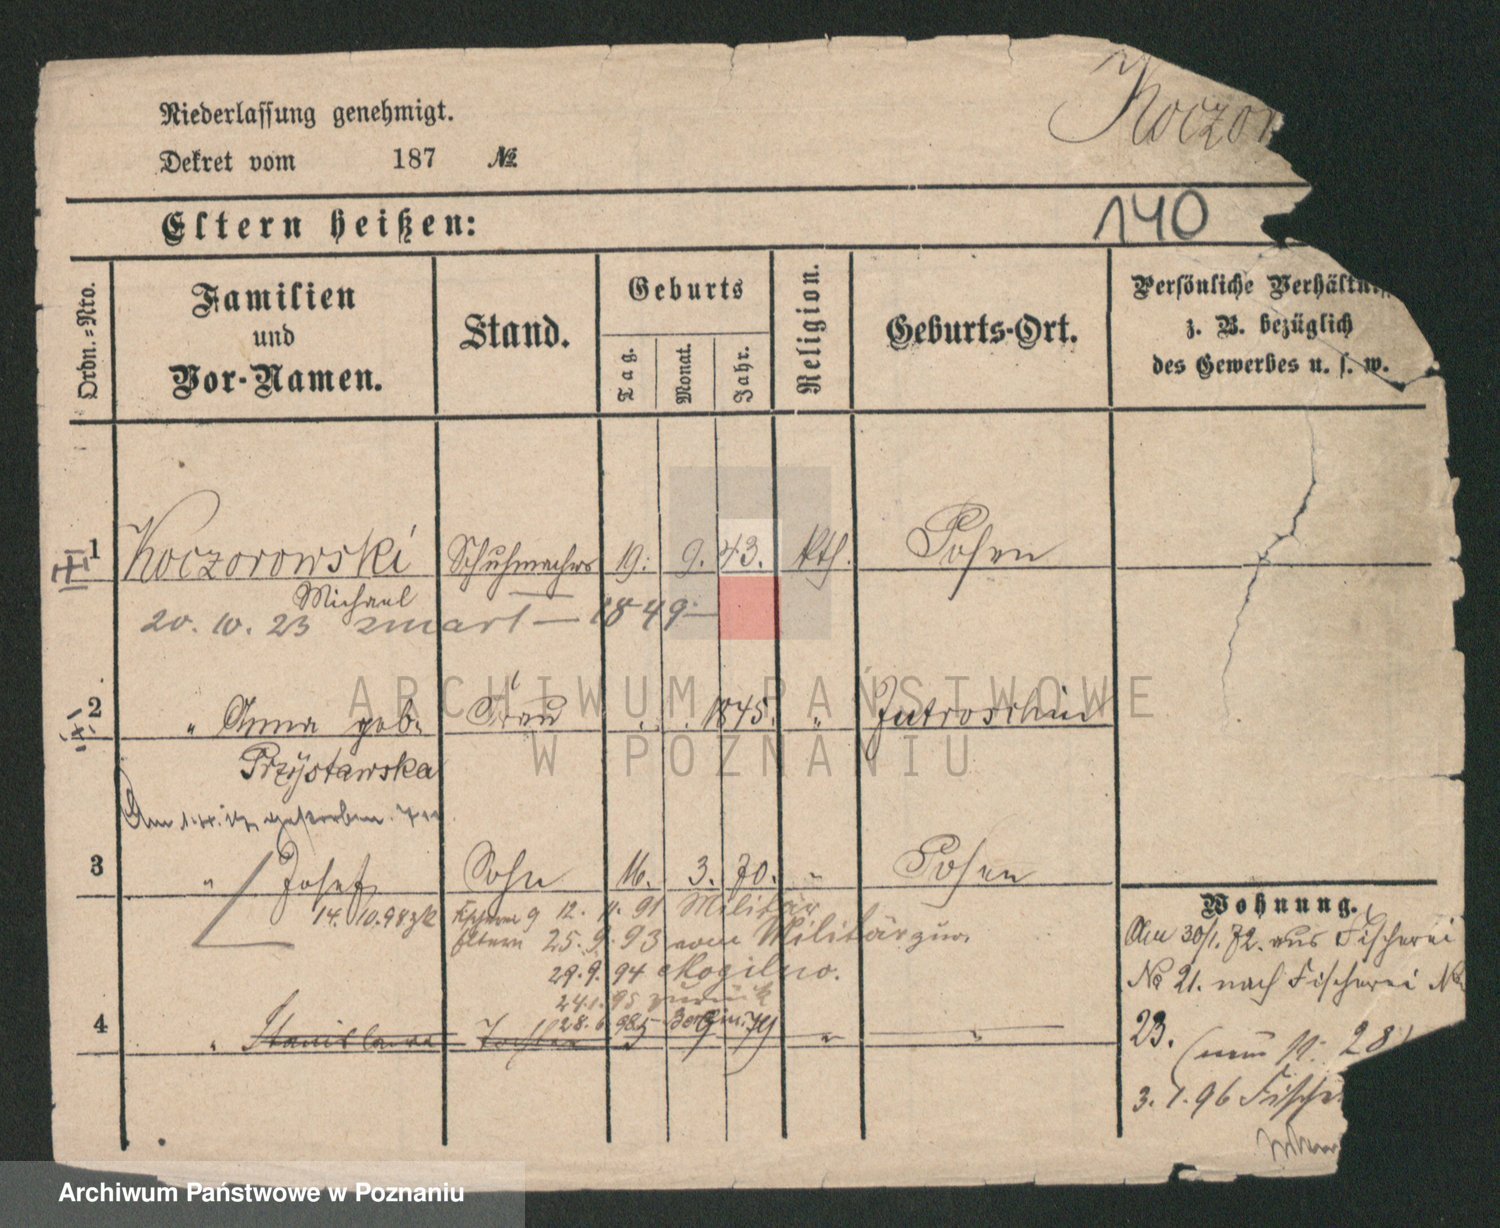 Koczor
Niederlassung genehmigt.
Dekret vom 187 №
Eltern heißen:
140
Ordn.-Nro.
Familien
und
Vor-Namen.
Stand.
Geburts
Tag.
Monat.
Jahr.
Religion.
Geburts-Ort.
Persönliche Verhältnis
z. B. bezüglich
des Gewerbes u. s. w.
1 Koczorowski Schuhmacher 19. 9. 43. kth. Posen
Michael
20. 10. 23 zmarł — 1849 —
2 " Anna geb. Frau 1845. " Jutroschin
Przystawska
Am gestorben.
3 " Josef Sohn 16. 3. 70. " Posen
14. 10. 98 12. 11. 91 Militär
Eltern 25. 9. 93 vom Militär zur.
29. 9. 94 Mogilno.
24. 1. 95 zurück
28. 6. 98
4 " Stanislawa Tochter 5 9 79 " "
Wohnung.
Am 30/1. 72. aus Fischerei
No 21. nach Fischerei No
23. (nun N: 28)
3. 1. 96 Fische
ARCHIWUM PAŃSTWOWE
W POZNANIU
Archiwum Państwowe w Poznaniu